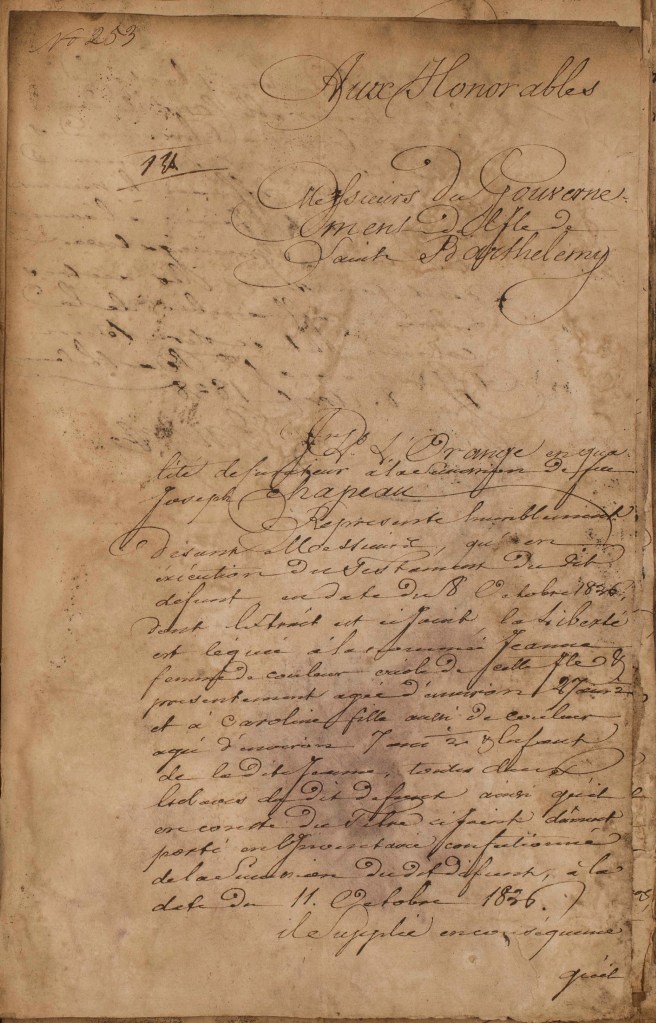 No 253
Aux Honorables
Messieurs du Gouverne-
ment de l'Ile de
Sainte Barthelemy
L'Orange en qua-
lité de la Succession de feu
Joseph Chapeau
Represente humblement
Devant Messieurs, qu'en
exécution du Testament du dit
défunt, en date du 8 Octobre 1836,
dont lextrait est ci joint, la Liberté
est léguée à la nommée Jeanne
femme de couleur créole de cette Ile &
presentement agée d'environ 27 ans
et à Caroline fille aussi de couleur
agée d'environ 7 enfant
de la dite Jeanne, toutes deux
Esclaves du dit defunt ainsi quil
en conste du Titre ci joint
porté en l'Inventaire
de la Succession du dit défunt, à la
date du 11. Octobre 1836.
il Supplie en conséquence
quil